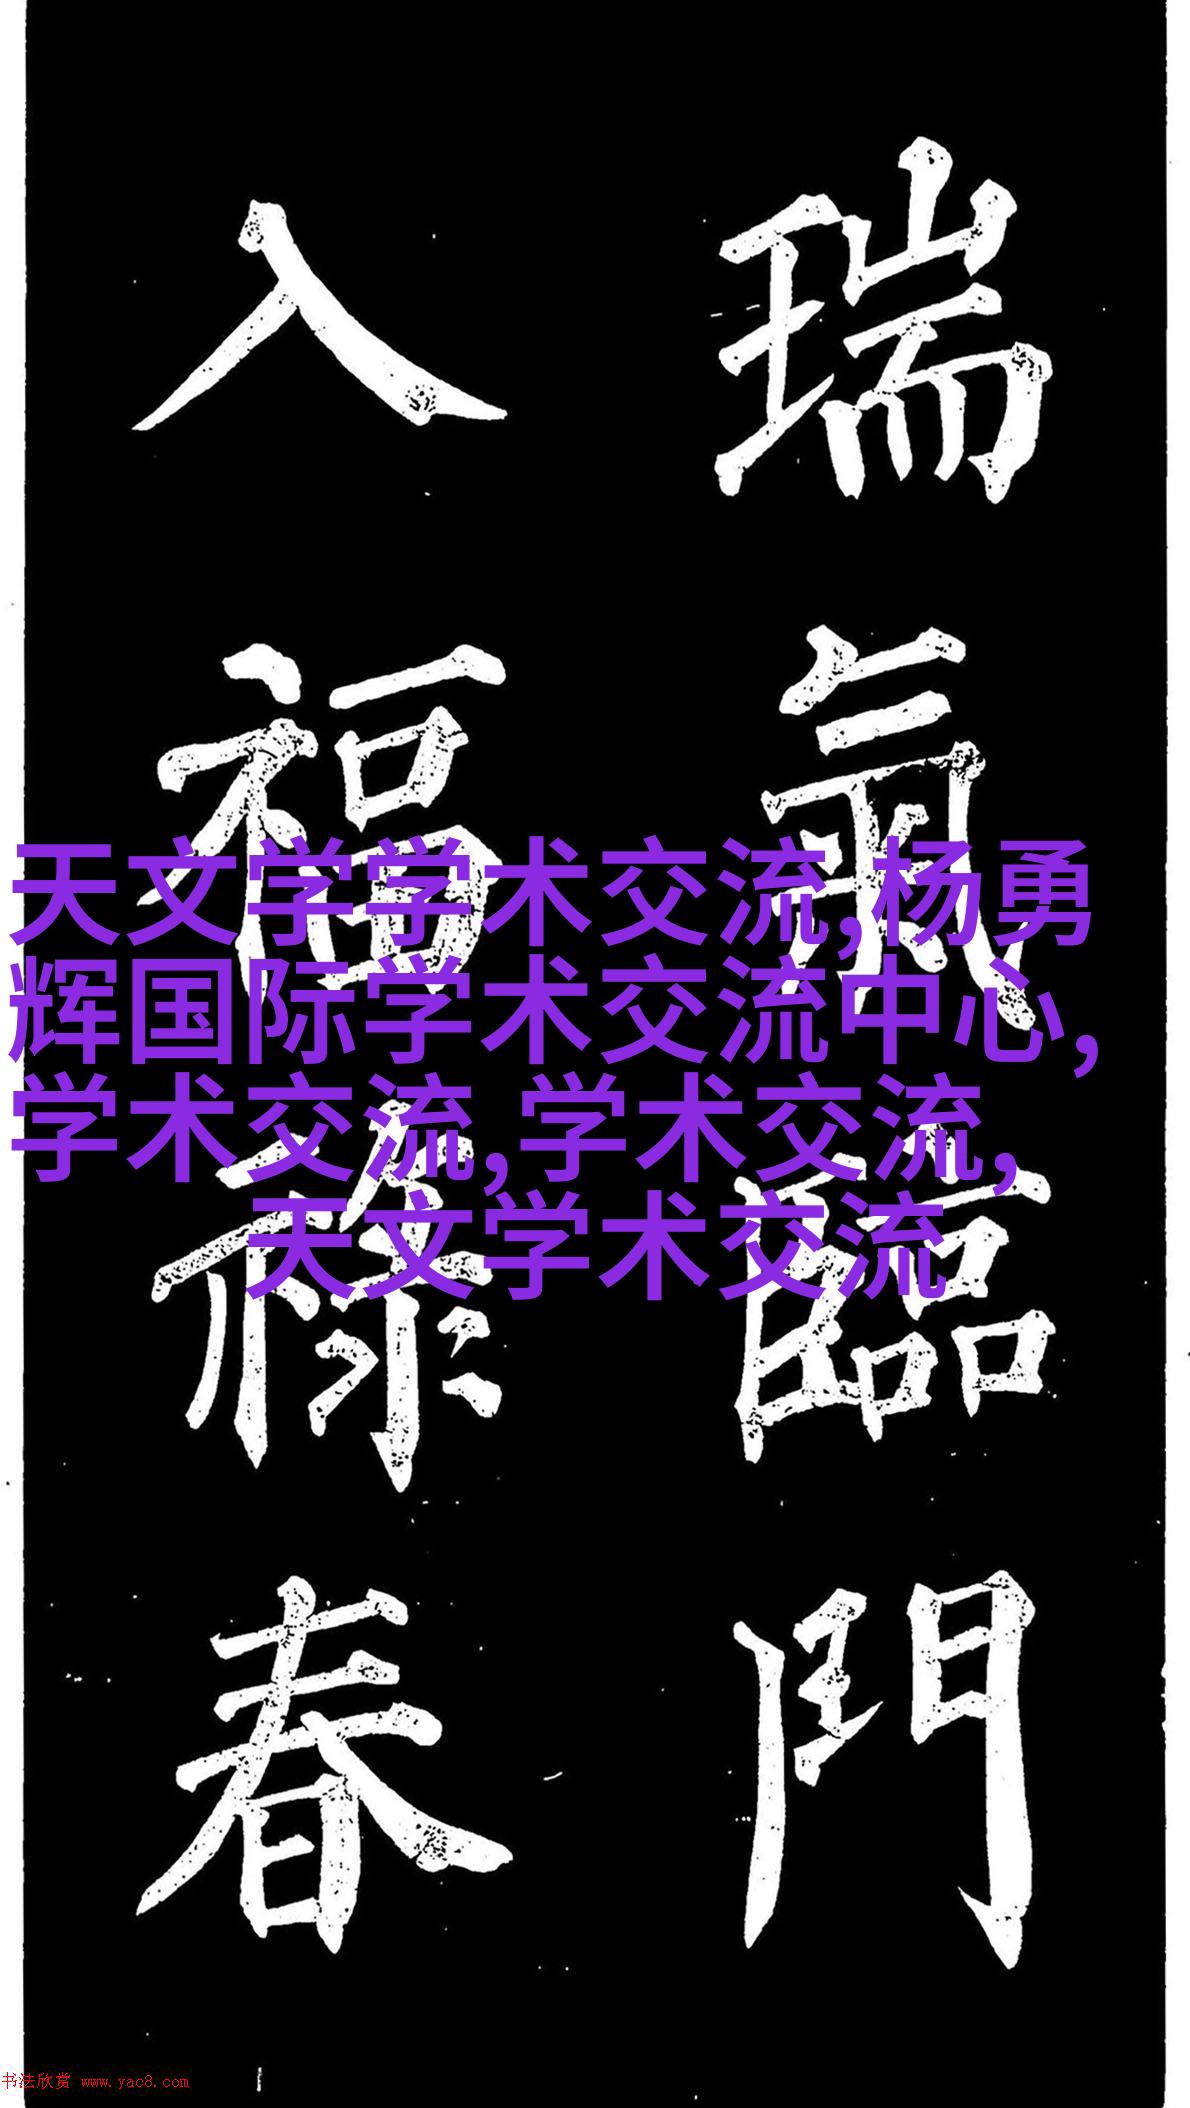 瑞氣臨門
入福祿春
天文学学术交流,杨勇
辉国际学术交流中心,
学术交流,学术交流,
天文学术交流
书法欣赏 www.yac8.com